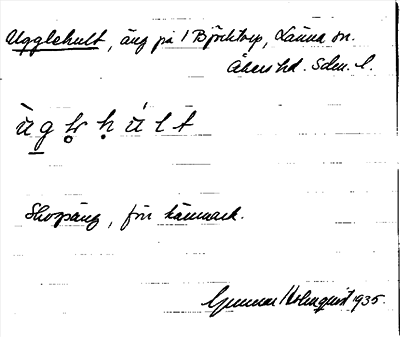 Ugglehult, äng på 1 Björktorp, Länna sn.
Åkers hd. Sdm. l.
Skogsäng, förr kärrmark.
Gunnar Holmquist 1935.